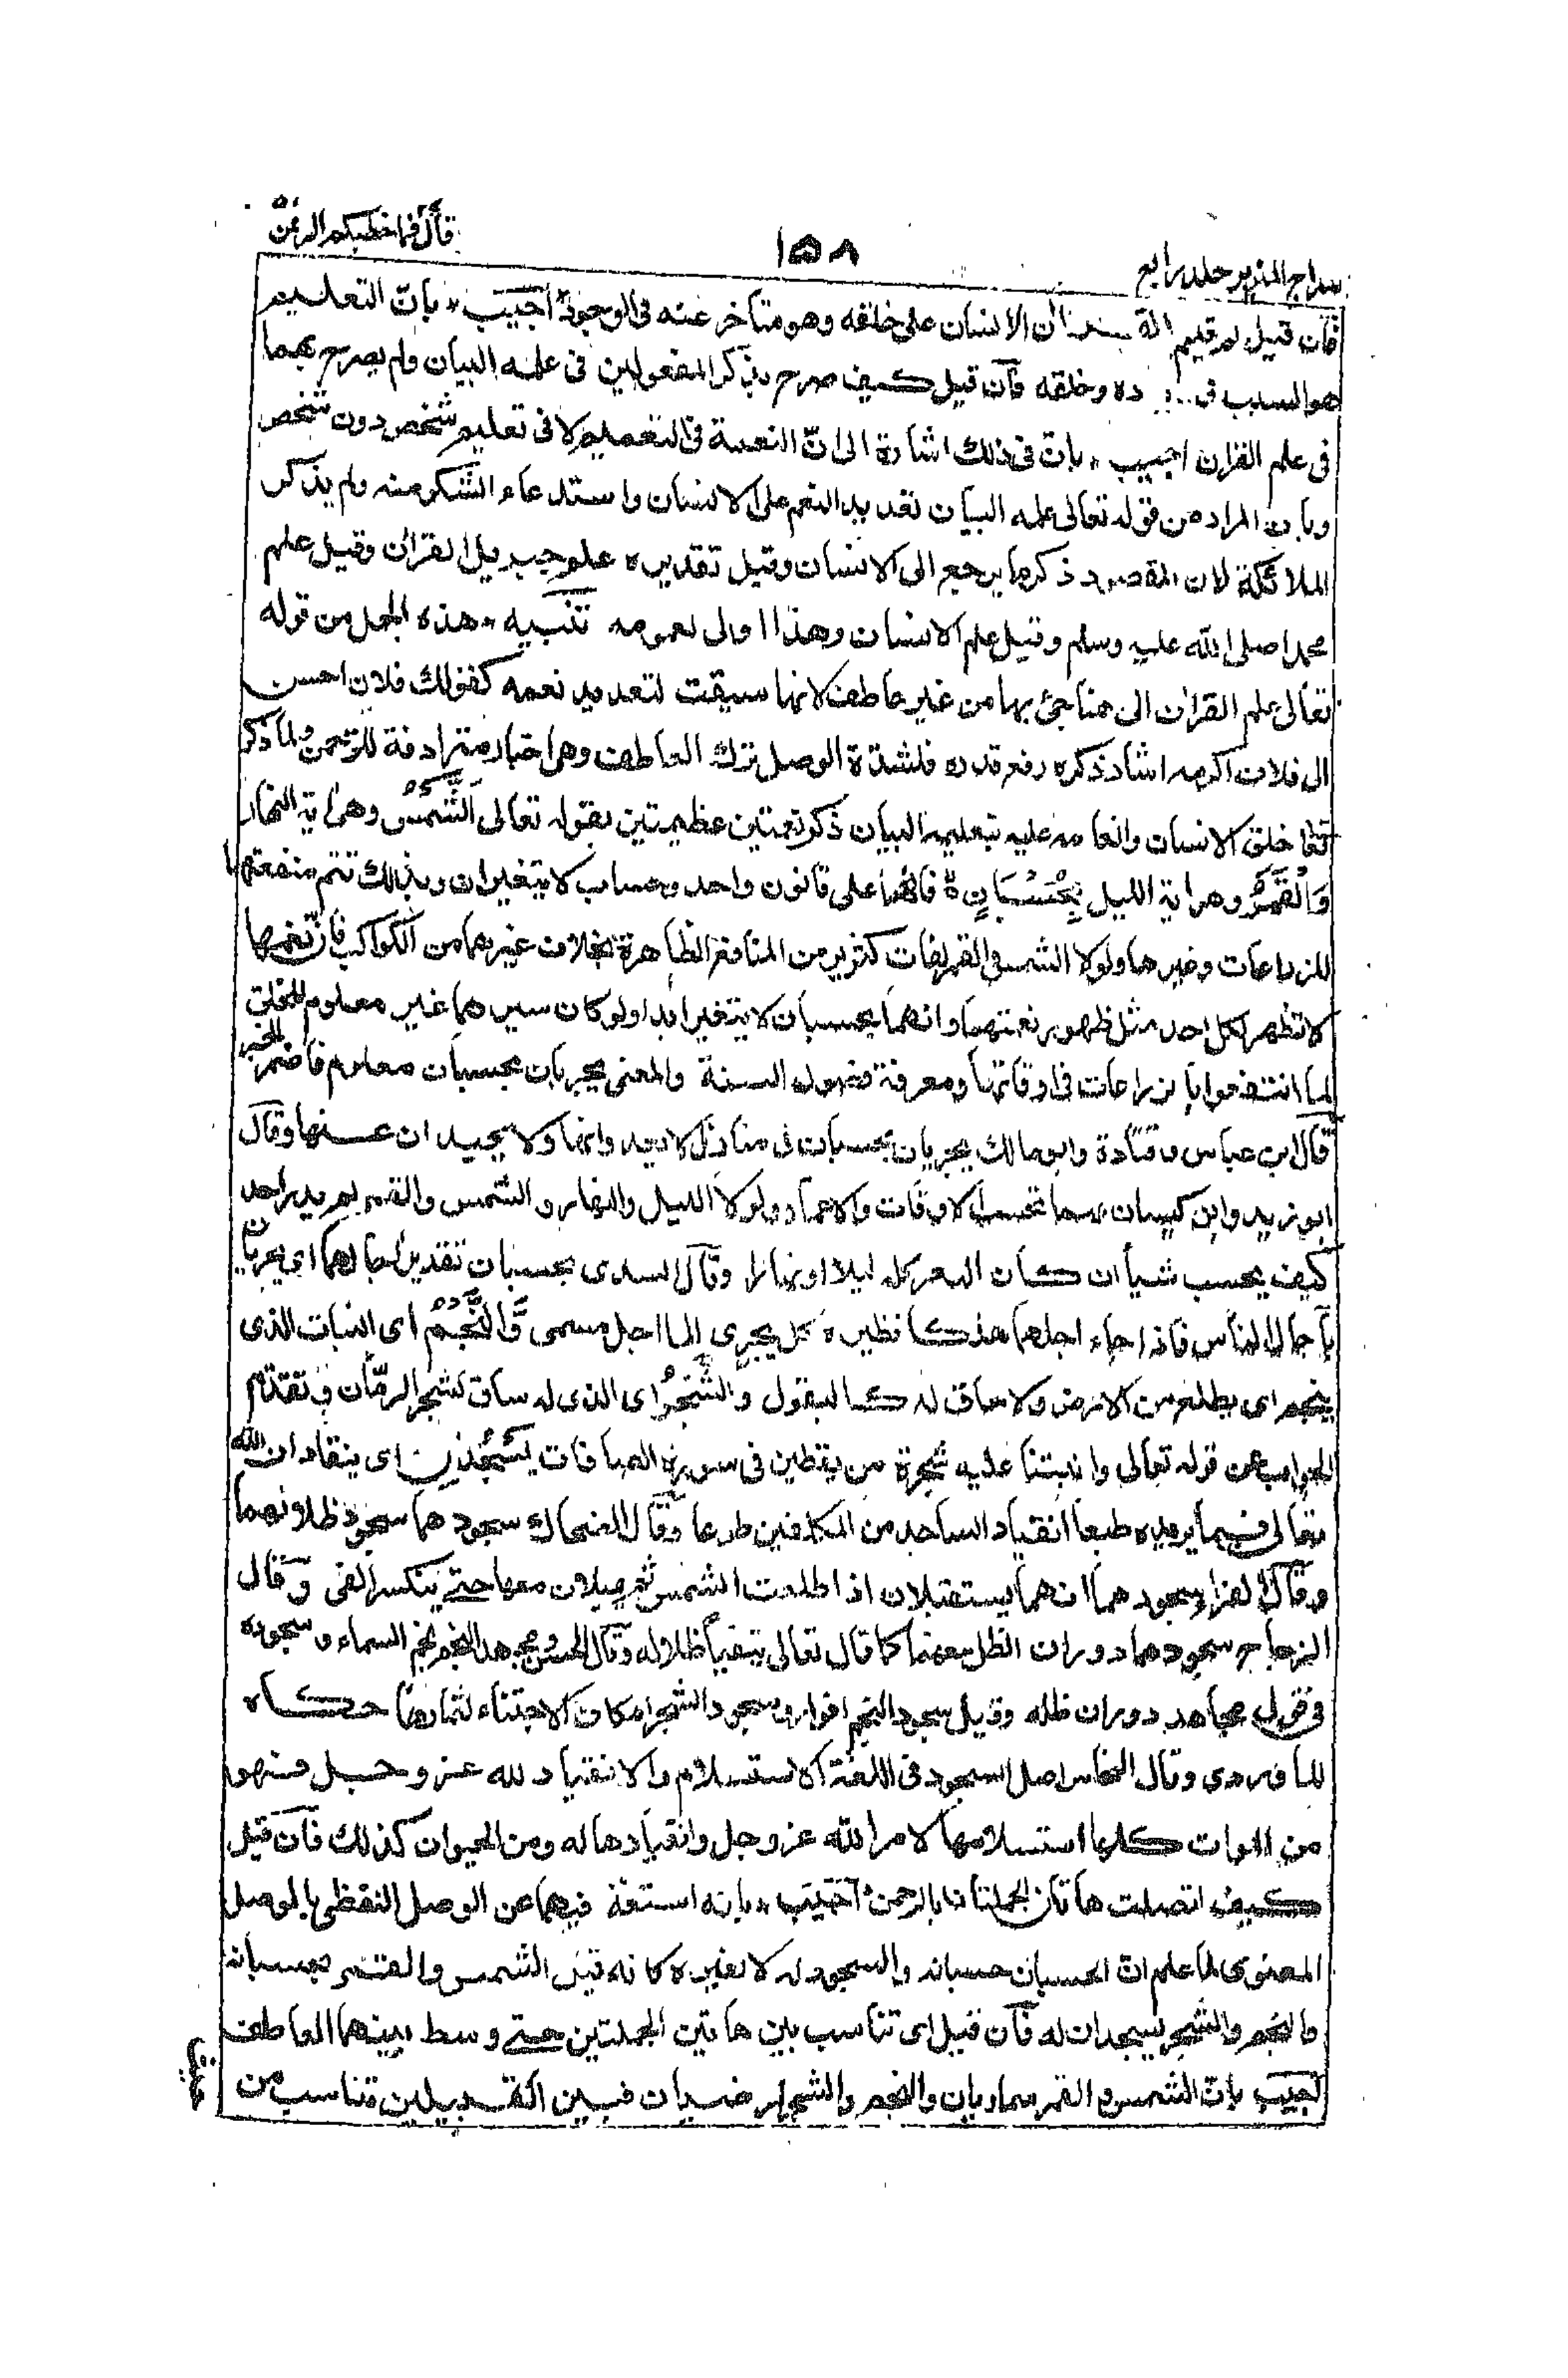 سراج المنير جلد رابع
١٥٨
قال فما خطبكم الرحمن
فان قيل لم قدم على خلقه وهو متأخر عنه فى الوجود اجيب بان التعليم
هو السبب فى وخلقه فان قيل كيف صرح بذكر المفعولين فى علمه البيان ولم يصرح بهما
فى علم القران اجيب بان فى ذلك اشارة الى انّ النعمة فى التعميم لا فى تعليم شخص دون شخص
وبان المراد من قوله تعالى علمه البيان تعديد النعم على الانسان واستدعاء الشكر منه ولم يذكر
الملائكة لان المقصود ذكر ما يرجع الى الانسان وقيل تقديره علم جبريل القران وقيل علم
محمدا صلى الله عليه وسلم وقيل علم الانسان وهذا اولى لعمومه تنبيه هذه الجمل من قوله
تعالى علم القران الى هنا جئ بها من غير عاطف لانها سيقت لتعديد نعمه كقولك فلان احسن
الى فلان اكرمه اشاد ذكره رفع قدره فلشدة الوصل ترك العاطف وهى اخبار مترادفة للرحمن ولما ذكر
تعا خلق الانسان وانعامه عليه بتعليمه البيان ذكر نعمتين عظيمتين بقوله تعالى اَلشَّمْسُ وهى اية النهار
وَالْقَمَرُ وهو اية الليل بِحُسْبَانٍ فانهما على قانون واحد وحساب لا يتغيران وبذلك تتم منفعتهما
للزراعات وغيرها ولولا الشمس والقمر لفات كثير من المنافع الظاهرة بخلاف غيرهما من الكواكب فان نفعها
لا تظهر لكل احد مثل ظهور نعمتهما وانهما بحسبان لا يتغير ابدا ولو كان سيرهما غير معلوم للخلق
لما انتفعوا بالزراعات فى اوقاتها ومعرفة فصول السنة والمعنى يجريان بحسبان معلوم فاضمر الخبر
قال ابن عباس وقتادة وابو مالك يجريان بحسبان فى منازل لا يعدوانها ولا يحيدان عنها وقال
ابو زيد وابن كيسان بهما تحسب الاوقات والاعمار ولولا الليل والنهار والشمس والقمر لم يدر احد
كيف يحسب شيأ ان كان الدهر كله ليلا او نهارا وقال السدى بحسبان تقدير اجالهما اى يجريان
بآجال الناس فاذا جاء اجلهما هلكا نظيره كل يجرى الى اجل مسمى وَّالنَّجْمُ اى النبات الذى
ينجم اى يطلع من الارض ولا ساق له كالبقول وَالشَّجَرُ اى الذى له ساق كشجر الرمّان وتقدّم
الجواب عن قوله تعالى وانبتنا عليه شجرة من يقطين فى سورة الصافات يَسْجُدٰنِ اى ينقادان الله
تعالى فيما يريده طبعا انقياد الساجد من المكلفين طوعا وقال الضحاك سجودهما سجود ظلالهما
وقال الفراء سجودهما انهما يستقبلان اذا طلعت الشمس ثم يميلان معها حتى ينكسر الفئ وقال
الزجاج سجودهما دوران الظل معهما كما قال تعالى يتفيأ ظلاله وقال الحسن ومجاهد النجم نجم السماء وسجوده
فى قول مجاهد دوران ظله وقيل سجود النجم افوله وسجود الشجر امكان الاجتناء لثمارها حكاه
الماوردى وقال النحاس اصل السجود فى اللغة الاستسلام والانقياد لله عز وجل فهو
من الموات كلها استسلامها لامر الله عز وجل وانقيادها له ومن الحيوان كذلك فان قيل
كيف اتصلت هاتان الجملتان بالرحمن اجيب بانه استغنى فيهما عن الوصل اللفظى بالوصل
المعنوى لما علم ان الحسبان حسبانه والسجود له لا لغيره كانه قيل الشمس والقمر بحسبانه
والنجم والشجر يسجدان له فان قيل اى تناسب بين هاتين الجملتين حتى وسط بينهما العاطف
اجيب بان الشمس والقمر سماويان والنجم والشجر ارضيان فبين القبيلين تناسب من